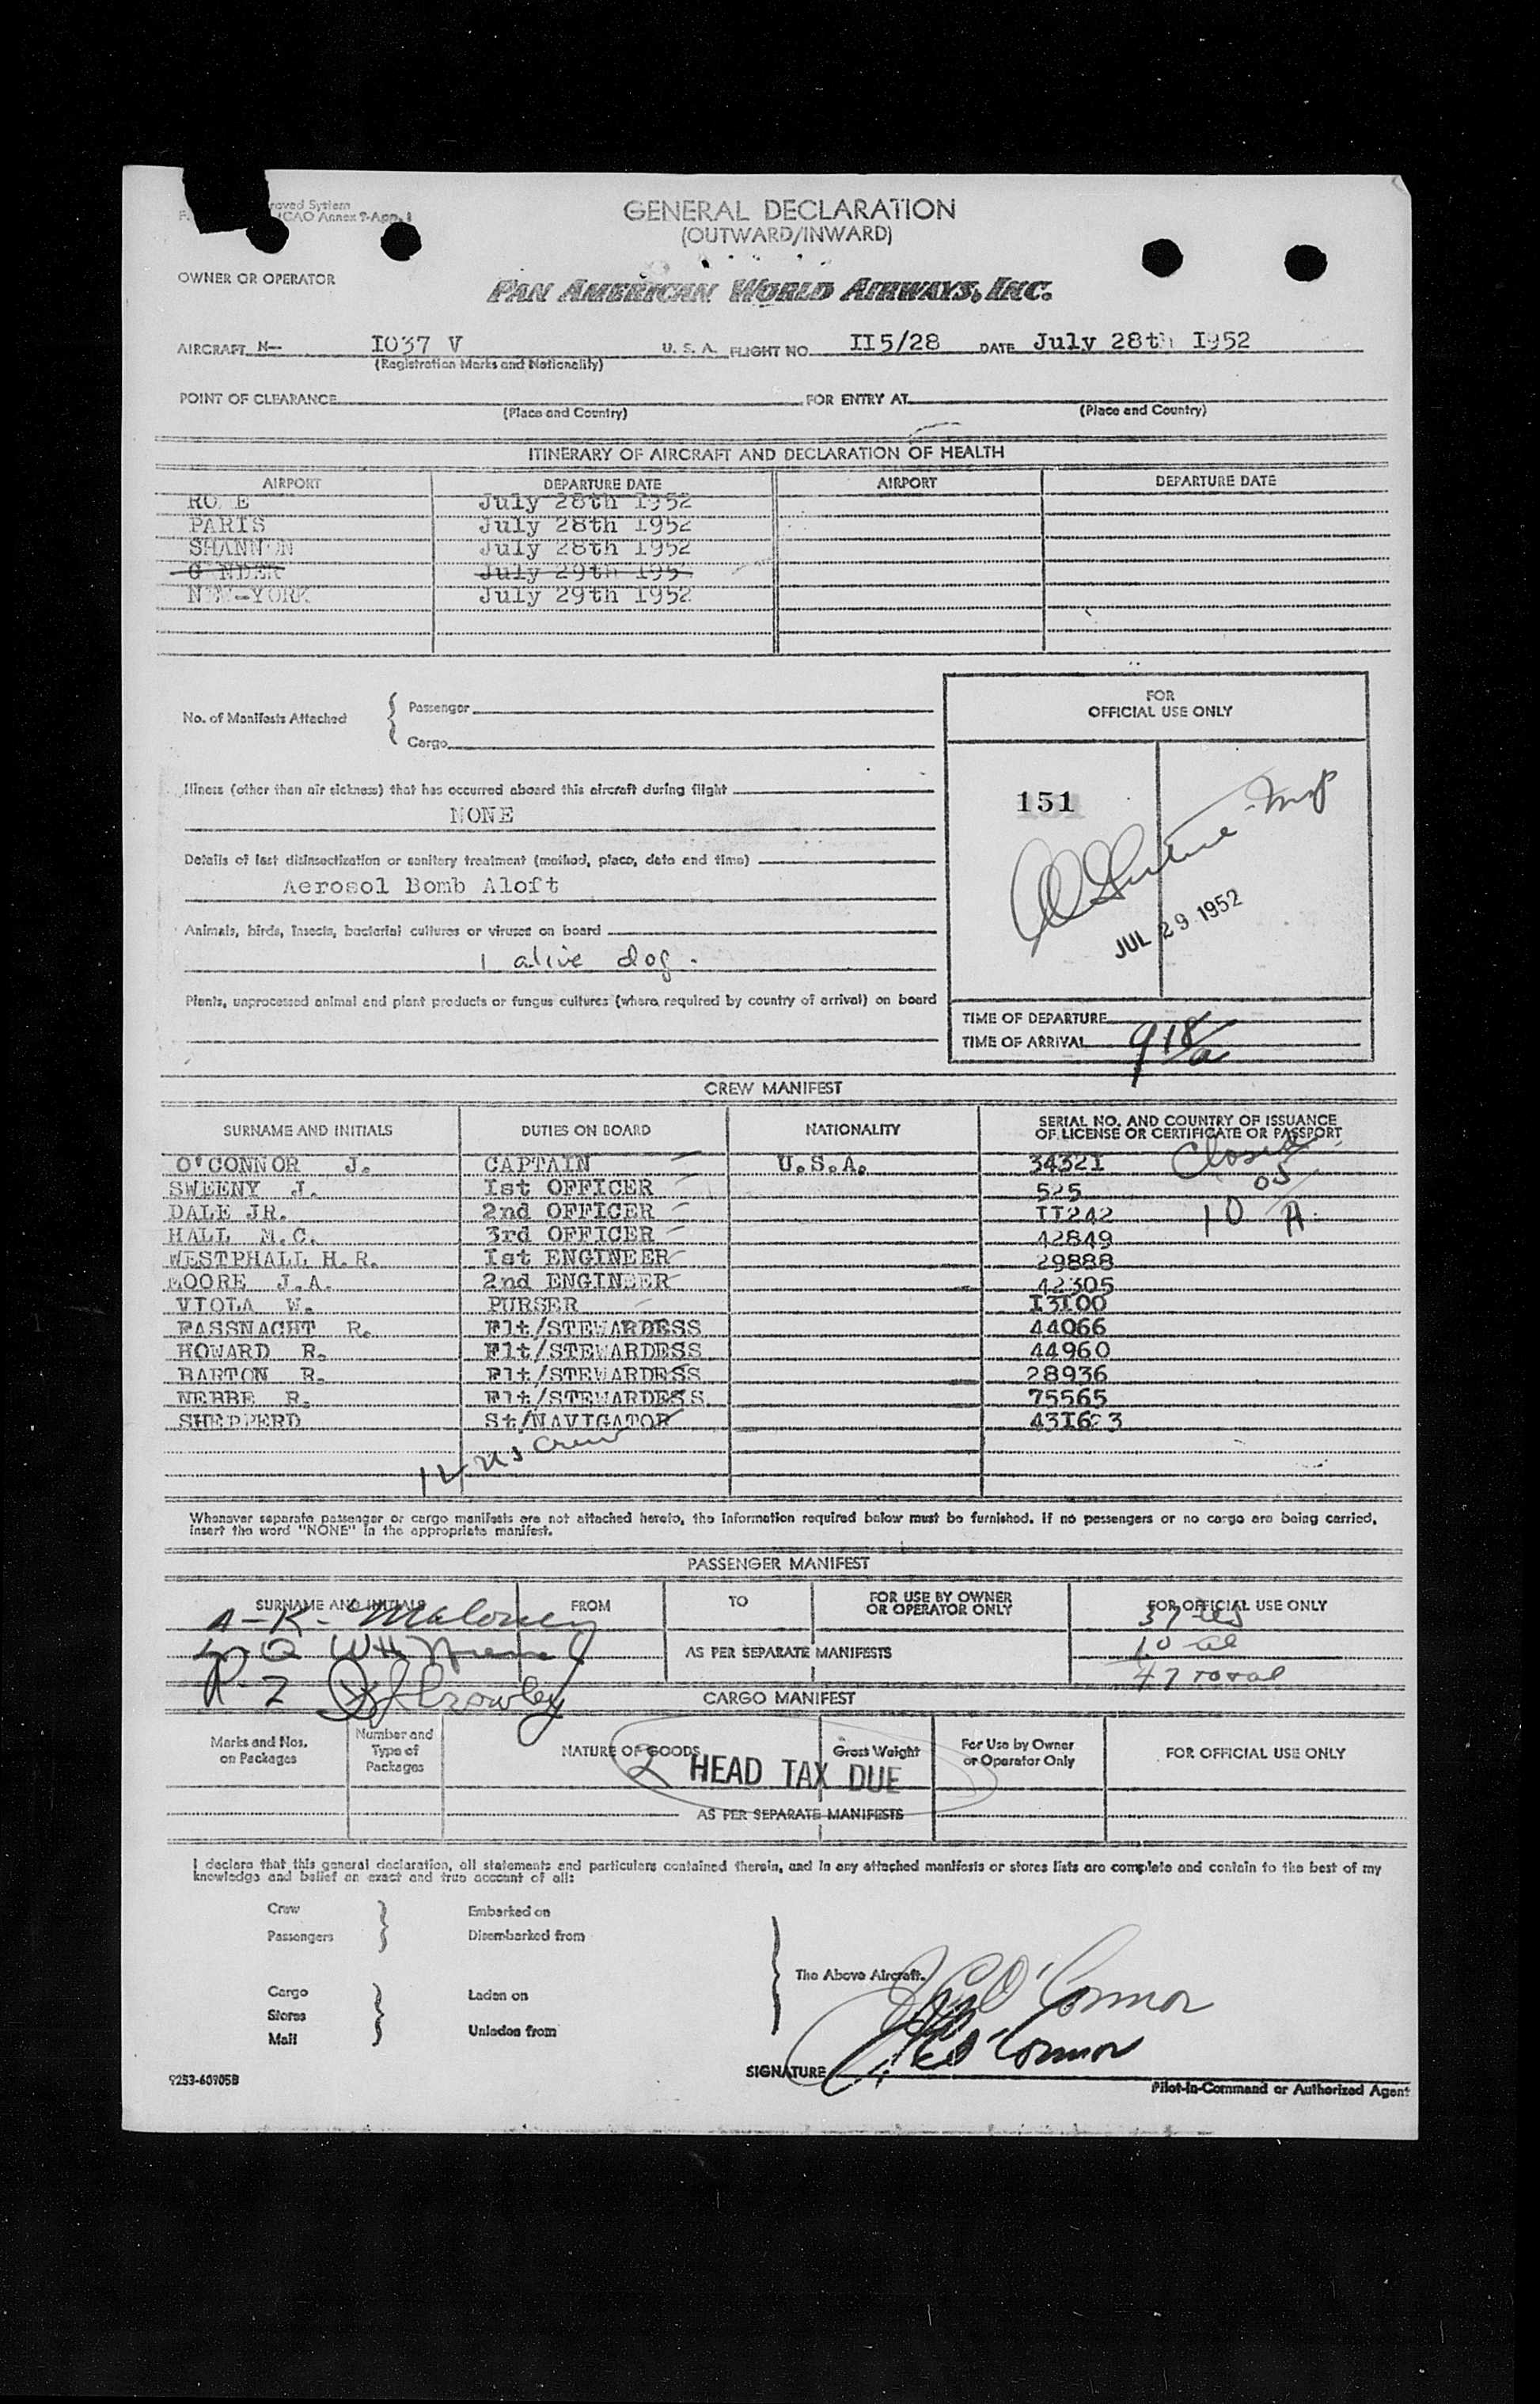 roved System
ICAO Annex 9-App. 1
GENERAL DECLARATION
(OUTWARD/INWARD)
OWNER OR OPERATOR
PAN AMERICAN WORLD AIRWAYS, INC.
AIRCRAFT N- I037 V U. S. A. FLIGHT NO. II5/28 DATE July 28th I952
(Registration Marks and Nationality)
POINT OF CLEARANCE FOR ENTRY AT
(Place and Country) (Place and Country)
ITINERARY OF AIRCRAFT AND DECLARATION OF HEALTH
AIRPORT DEPARTURE DATE AIRPORT DEPARTURE DATE
RO E July 28th I952
PARIS July 28th I952
SHANN N July 28th I952
G NDER July 29th I95
NEW-YORK July 29th I952
No. of Manifests Attached { Passenger
Cargo
FOR
OFFICIAL USE ONLY
Illness (other than air sickness) that has occurred aboard this aircraft during flight
NONE
151
Details of last disinsectization or sanitary treatment (method, place, date and time)
Aerosol Bomb Aloft
JUL 29 1952
Animals, birds, insects, bacterial cultures or viruses on board
1 alive dog.
Plants, unprocessed animal and plant products or fungus cultures (where required by country of arrival) on board
TIME OF DEPARTURE
TIME OF ARRIVAL 918/a
CREW MANIFEST
SURNAME AND INITIALS DUTIES ON BOARD NATIONALITY SERIAL NO. AND COUNTRY OF ISSUANCE
OF LICENSE OR CERTIFICATE OR PASSPORT
O'CONNOR J. CAPTAIN U.S.A. 34321 Closed
SWEENY J. Ist OFFICER 525 05
DALE JR. 2nd OFFICER II242 10 A.
HALL M.C. 3rd OFFICER 42849
WESTPHALL H.R. Ist ENGINEER 29888
MOORE J.A. 2nd ENGINEER 42305
VIOLA W. PURSER I3I00
FASSNACHT R. Flt/STEWARDESS 44066
HOWARD R. Flt/STEWARDESS 44960
BARTON R. Flt/STEWARDESS 28936
NEBBE R. Flt/STEWARDESS 75565
SHEPPERD St/NAVIGATOR 43I623
12 US Crew
Whenever separate passenger or cargo manifests are not attached hereto, the information required below must be furnished. If no passengers or no cargo are being carried,
insert the word "NONE" in the appropriate manifest.
PASSENGER MANIFEST
SURNAME AND INITIALS FROM TO FOR USE BY OWNER
OR OPERATOR ONLY FOR OFFICIAL USE ONLY
A-K- Maloney 37
L-Q WH AS PER SEPARATE MANIFESTS 10 al
R-Z Crowley 47 total
CARGO MANIFEST
Marks and Nos.
on Packages Number and
Type of
Packages NATURE OF GOODS Gross Weight For Use by Owner
or Operator Only FOR OFFICIAL USE ONLY
2 HEAD TAX DUE
AS PER SEPARATE MANIFESTS
I declare that this general declaration, all statements and particulars contained therein, and in any attached manifests or stores lists are complete and contain to the best of my
knowledge and belief an exact and true account of all:
Crew Embarked on
Passengers Disembarked from
The Above Aircraft.
Cargo Laden on
Stores
Mail Unladen from
O'Connor
O'Connor
SIGNATURE
9253-60905B
Pilot-in-Command or Authorized Agent